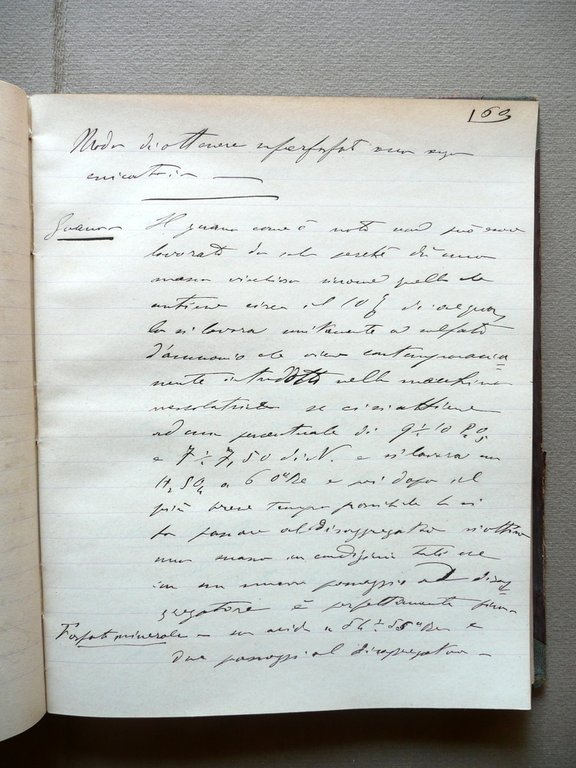 169
Modo di ottenere superfosfati senza
essicatoio
Guano Il guano come è noto non può essere
lavorato da solo perché dà una
massa vischiosa
contiene circa il 10 % di acqua
Lo si lavora unitamente a solfato
d'ammonio che viene contemporanea-
mente introdotto nella macchina
mescolatrice se ci si attiene
ad una percentuale di 9 ÷ 10 P2O5
e 7 ÷ 7,50 di N. e si lavora con
H2SO4 a 60 Be e poi dopo il
più breve tempo possibile lo si
fa passare al disaggregatore si ottiene
una massa in condizioni tali che
con un nuovo passaggio al disag-
gregatore è perfettamente fina
Fosfato minerale - con acido a 54 ÷ 55 Be e
due passaggi al disaggregatore -